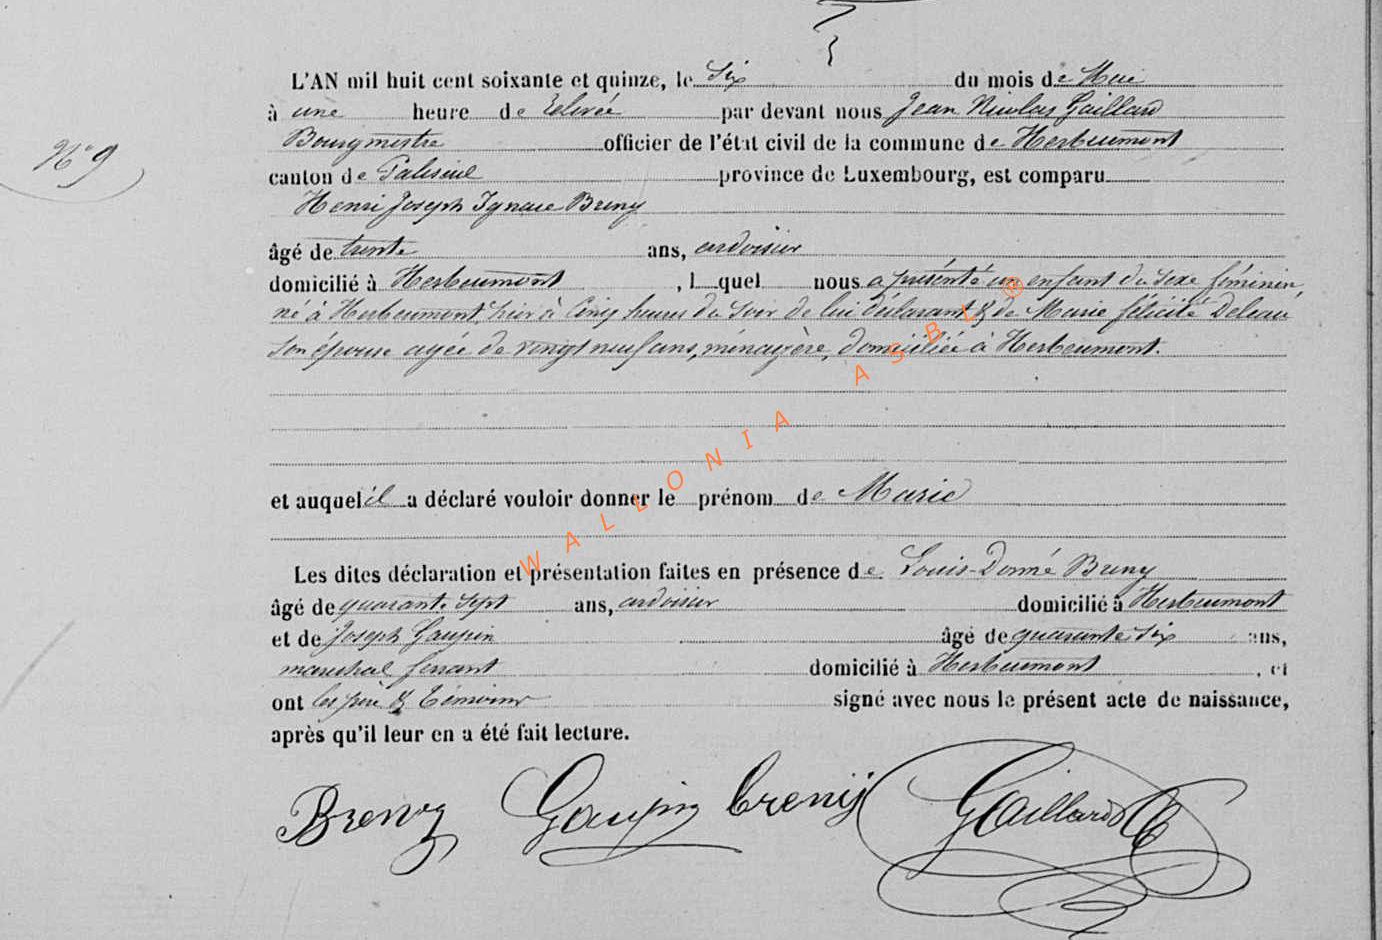 L'AN mil huit cent soixante et quinze, le six du mois de Mai
à une heure de Relevée par devant nous Jean Nicolas Gaillard
Bourgmestre officier de l'état civil de la commune de Herbeumont
N° 9
canton de Paliseul province de Luxembourg, est comparu
Henri Joseph Ignace Breny
âgé de trente ans, ardoisier
domicilié à Herbeumont, l quel nous a présenté un enfant du sexe féminin,
né à Herbeumont, hier à Cinq heures du Soir de lui déclarant & de Marie félicité Deleau
son épouse agée de vingt neuf ans, ménagère, domiciliée à Herbeumont.
et auquel il a déclaré vouloir donner le prénom de Marie
Les dites déclaration et présentation faites en présence de Louis Donné Breny
âgé de quarante sept ans, ardoisier domicilié à Herbeumont
et de Joseph Gaupin âgé de quarante six ans,
maréchal ferrant domicilié à Herbeumont, et
ont les père & témoins signé avec nous le présent acte de naissance,
après qu'il leur en a été fait lecture.
Breny Gaupin Breny Gaillard
WALLONIA ASBL ®